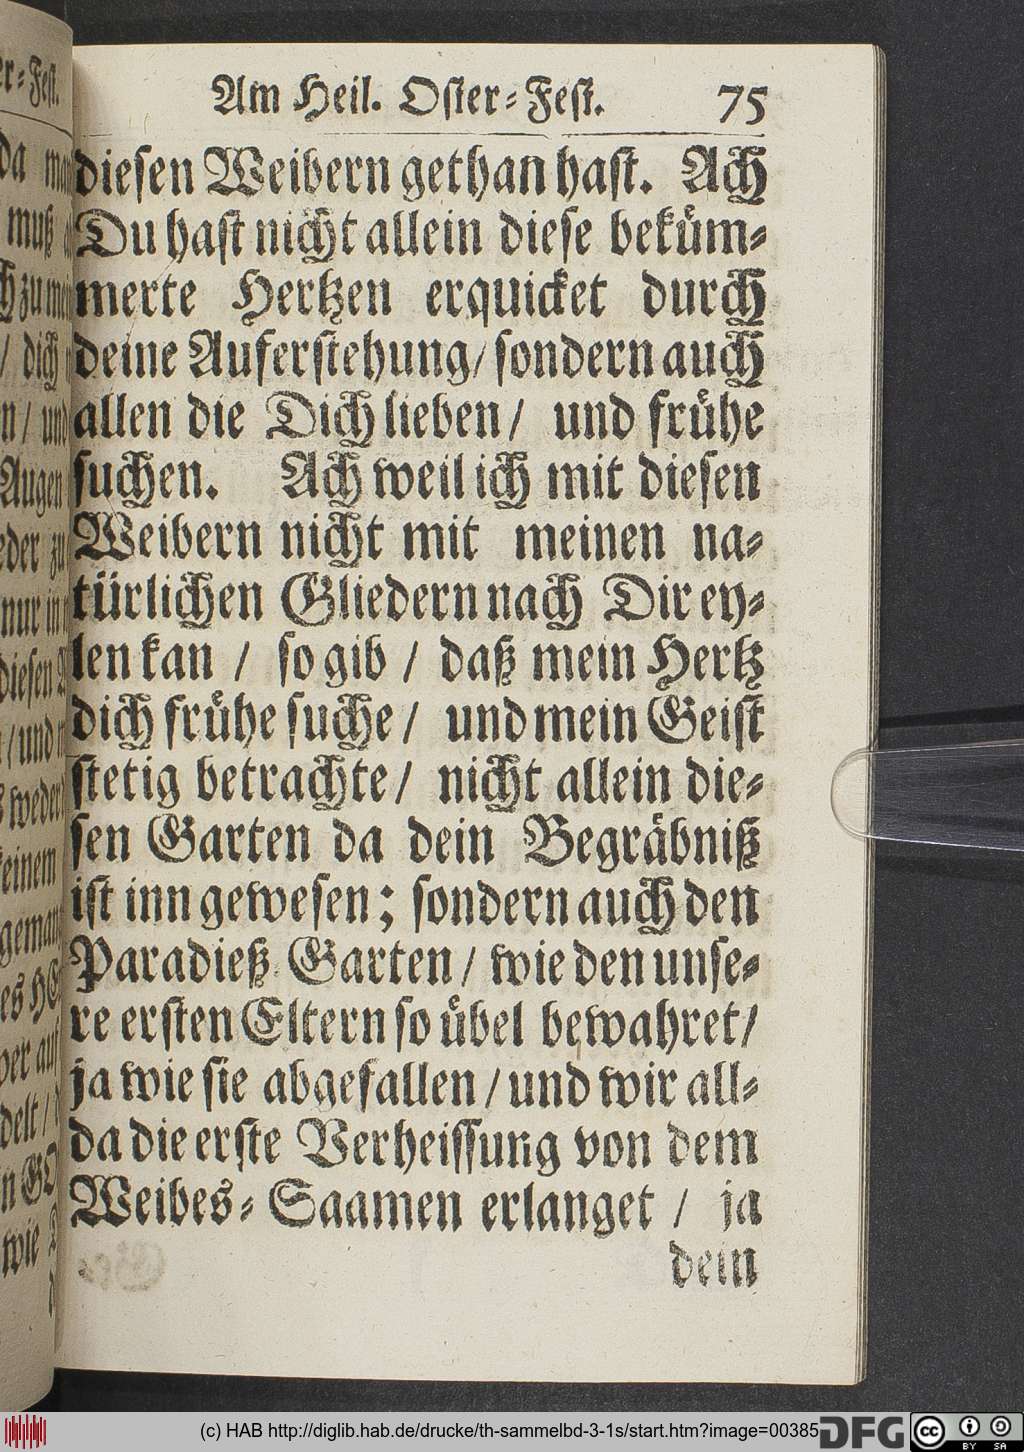 Am Heil. Oster-Fest. 75
diesen Weibern gethan hast. Ach
Du hast nicht allein diese beküm-
merte Hertzen erquicket durch
deine Auferstehung/ sondern auch
allen die Dich lieben/ und frühe
suchen. Ach weil ich mit diesen
Weibern nicht mit meinen na-
türlichen Gliedern nach Dir ey-
len kan / so gib / daß mein Hertz
dich frühe suche/ und mein Geist
stetig betrachte/ nicht allein die-
sen Garten da dein Begräbniß
ist inn gewesen; sondern auch den
Paradieß Garten/ wie den unse-
re ersten Eltern so übel bewahret/
ja wie sie abgefallen/ und wir all-
da die erste Verheissung von dem
Weibes-Saamen erlanget / ja
dein
(c) HAB http://diglib.hab.de/drucke/th-sammelbd-3-1s/start.htm?image=00385
DFG
cc
BY SA